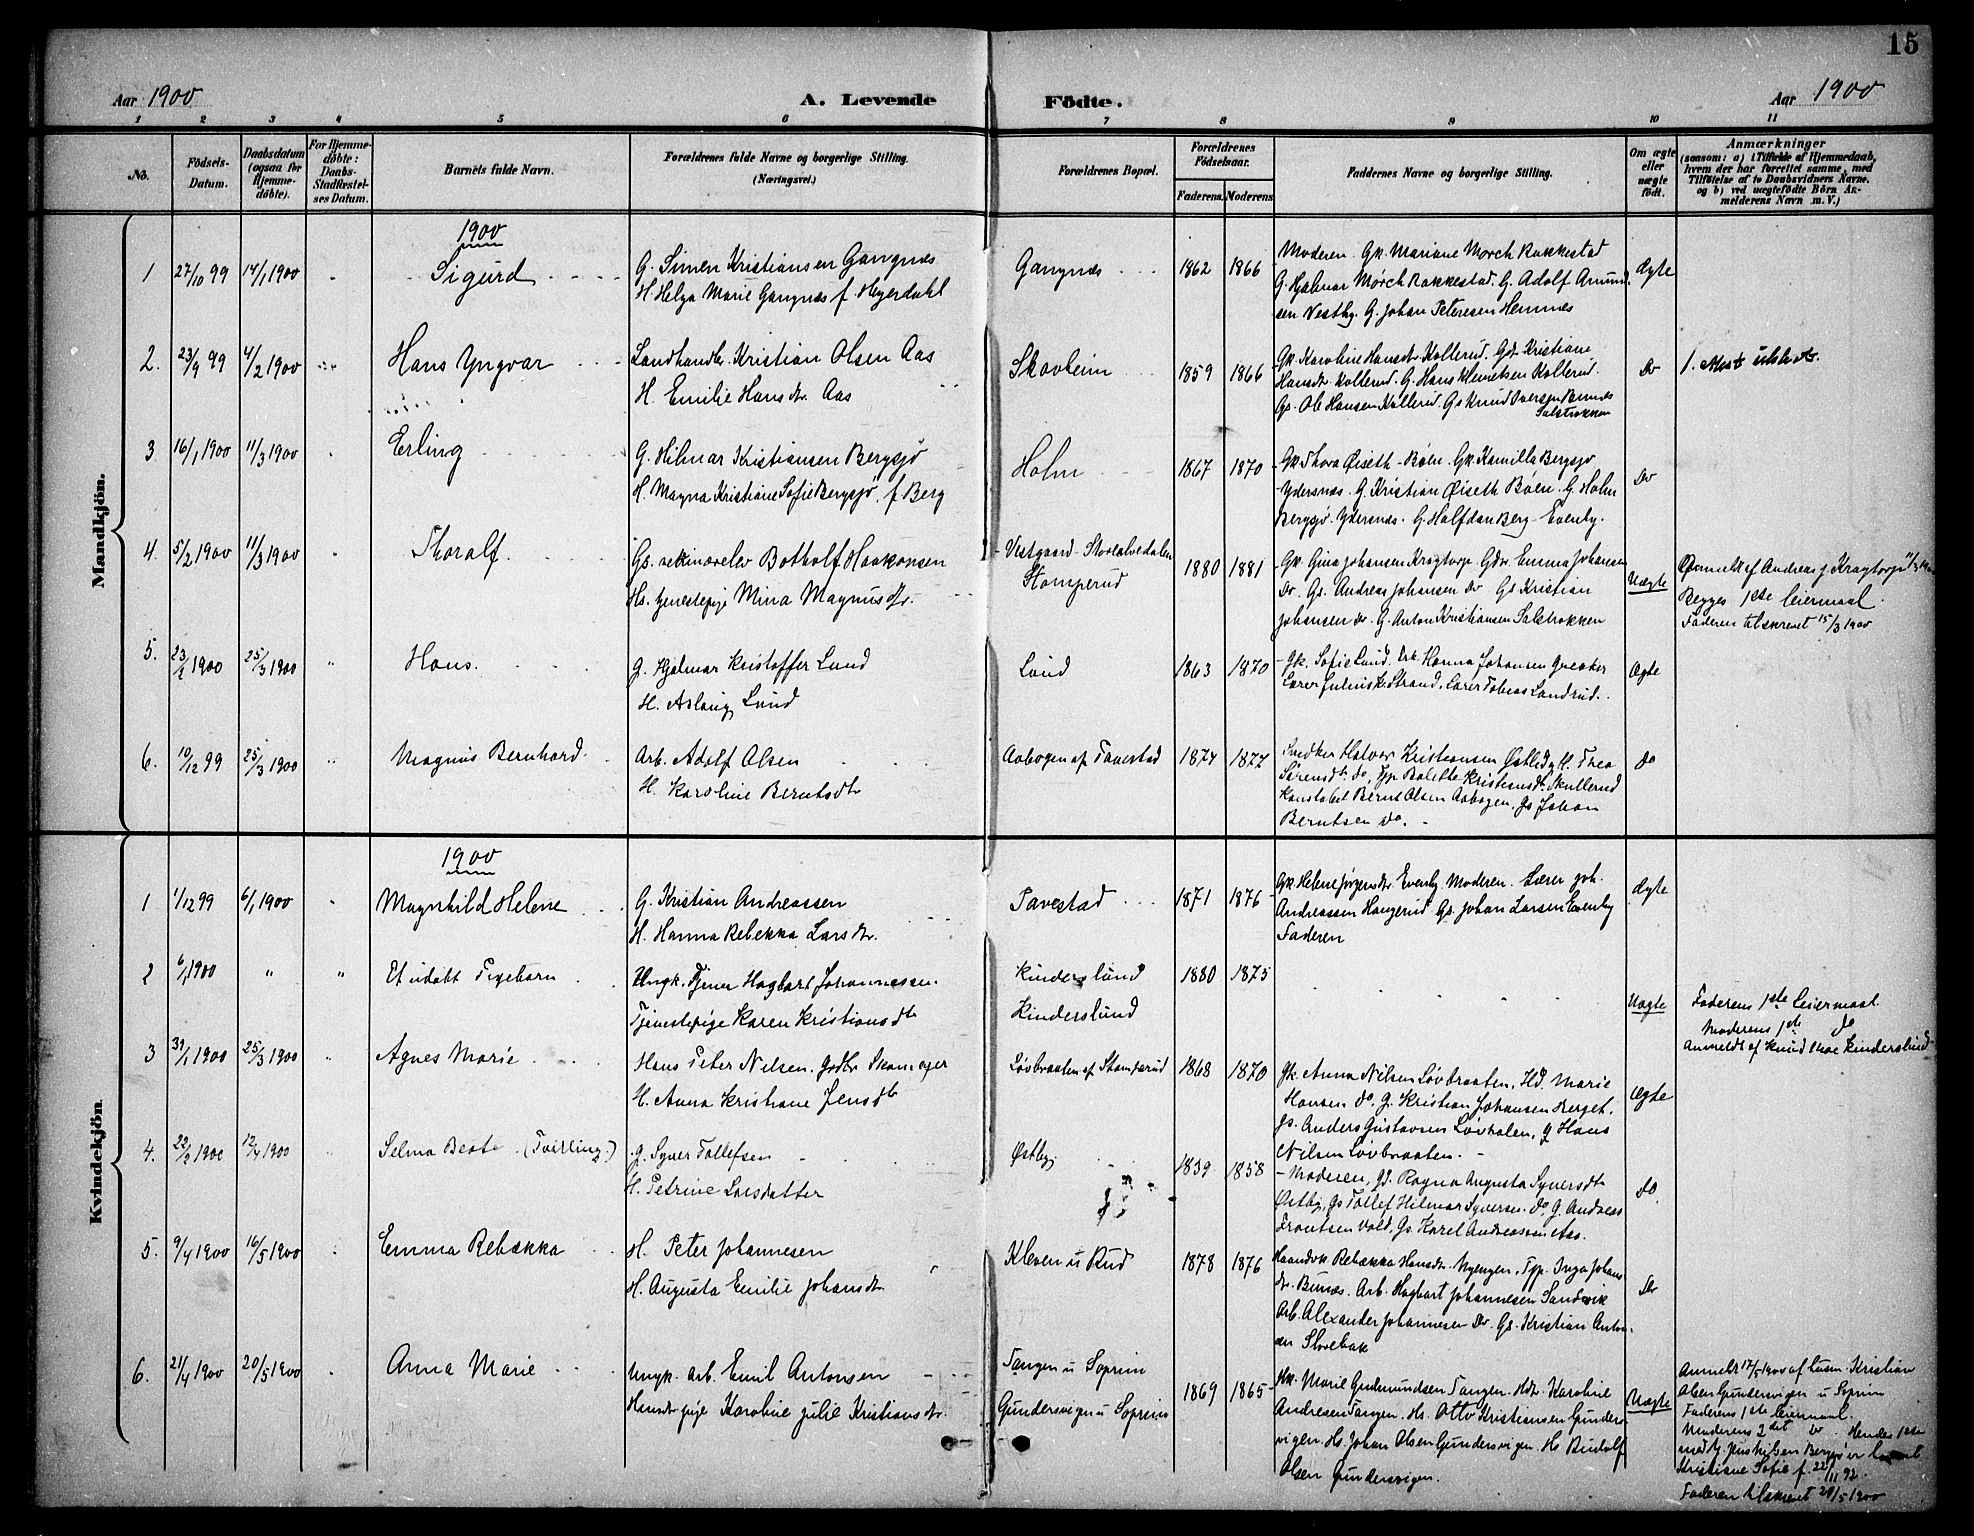 15
Aar 1900
A. Levende Födte.
Aar 1900
1 2 3 4 5 6 7 8 9 10 11
No.
Födsels-Datum.
Daabsdatum (ogsaa for Hjemme-döbte).
For Hjemme-döbte: Daabs-Stadfæstel-ses Datum.
Barnets fulde Navn.
Forældrenes fulde Navne og borgerlige Stilling.
(Næringsvei.)
Forældrenes Bopæl.
Forældrenes Födselsaar.
Faderens. Moderens.
Faddernes Navne og borgerlige Stilling.
Om ægte eller uægte födt.
Anmærkninger
(saasom: a) i Tilfælde af Hjemmedaab,
hvem der har forrettet samme, med
Tilföielse af to Daabsvidners Navne.
og b) ved uægtefödte Börn An-
melderens Navn m. V.)
Mandkjön.
1900
1 27/10 99 14/1 1900 Sigurd
G. Simen Kristiansen Gangnæs
H. Helga Marie Gangnæs f. Heyerdahl
Gangnæs 1862 1866
Moderen. Gk. Mariane Mørch Rakkestad
G. Hjalmar Mørch Rakkestad. G. Adolf Amund-
sen Vestby. G. Johan Petersen Hemnes
Ægte
2. 23/9 99 4/2 1900 Hans Yngvar
Landhandler Kristian Olsen Aas
H. Emilie Hansdtr. Aas
Skovheim 1859 1866
Gk. Karoline Hansdtr Kollerud. Gdtr Kristiane
Hansdtr. Kollerud. G. Hans Kollerud.
Gs. Ole Hansen Kollerud. Gs Knud Iversen
Do
3 16/1 1900 11/3 1900 Erling
G. Hilmar Kristiansen Bergsjø
H. Magna Kristiane Sofie Bergsjø, f. Berg
Holm 1867 1870
Gk. Thora Øiseth - Bøen. Gk. Kamilla Bergsjø
Ydersnæs. G. Kristian Øiseth Bøen. G. Holm
Bergsjø. Ydersnæs. G. Halfdan Berg - Evenby.
Do
4. 5/2 1900 11/3 1900 Thoralf.
Gs. Botholf Haakonsen
Hs. tjenestepige Mina Magnusdtr.
Vestgaard
Stomperud
1880 1881
Gk Gina Johansen Kragtorp Gdtr. Emma Johansen
Do. Gs. Andreas Johansen Do Gs Kristian
Johansen do. G. Anton Kristiansen Salstrokken
Uægte
Anmeldt af Andreas J. Kragtorp 11/3
Begges 1ste leiermaal.
Faderen tilskrevet 15/3 1900
5. 23/2 1900 25/3 1900 Hans.
G. Hjalmar Kristoffer Lund
H. Aslaug Lund
Lund 1863 1870
Gk. Sofie Lund. Hanna Johansen
Lærer Julius K. Strand. Lærer Tobias Landrud.
Ægte
6. 10/12 99 25/3 1900 Magnus Bernhard.
Arb. Adolf Olsen
H. Karoline Berntsdtr
Aabogen af Travestad 1874 1877
Snedker Halvor Kristiansen Østby H. Thea
Sørensdtr do, Tjp Bolette Kristiansdtr Skullerud
Konstabel Bernt Olsen Aabogen. Gs Johan
Berntsen do.
do
Kvindekjön.
1900
1 1/12 99 6/1 1900 Magnhild Helene
G. Kristian Andreassen
H. Hanna Rebekka Larsdtr.
Tavestad 1871 1876
Gk. Helene Jørgensdtr Evenby Moderen. Lærer Joh.
Andreassen Haugerud Gs. Johan Larsen Evenby
Faderen
Ægte
2 6/1 1900 " " Et udøbt Pigebarn
Ungk. Tjener Hagbart Johannessen.
Tjenestepige Karen Kristiansdtr
Kinderslund
Kinderslund
1880 1875
Uægte
Faderens 1ste leiermaal
Moderens 1ste do
Anmeldt af Knud Kinderslund
3 31/1 1900 25/3 1900 Agnes Marie
Hans Peter Nilsen. Gdbr Skomager
H. Anna Kristiane Jensdtr
Løvbraaten af Stomperud 1868 1870
Gk. Anna Nilsen Løvbraaten, Hd. Marie
Hansen do, G. Kristian Johansen Berget.
Gs. Anders Gustavsen Løvholen, G Hans
Nilsen Løvbraaten.
Ægte
4. 22/2 1900 12/4 1900 Selma Beate (Tvilling)
G. Syver Tollefsen
H. Petrine Larsdatter
Østby 1839 1858
Moderen, Gd. Ragna Augusta Syversdtr
Østby, Gs Tollef Hilmar Syversen do, G. Andreas
Frantsen Vold, Gs. Karel Andreassen Aas.
do
5. 9/4 1900 16/5 1900 Emma Rebækka
H. Peter Johannesen
H. Augusta Emilie Johansdtr
Kleven u Rud 1878 1876
Rebækka Hansdtr. Nyengen, Tjp. Inga Johans-
dtr. Bunæs. Arb. Hagbart Johannesen Sandvik
Arb. Alexander Johannesen Do. Gs. Kristian Anton-
sen Skovebak
Do
6. 21/4 1900 20/5 1900 Anna Marie
Ungk. Arb. Emil Antonsen
Karoline Julie Kristiansdtr.
Tangen u Soprim
Gundersvigen u Soprim
1869 1865
Hk. Marie Gudmundsen Tangen. Hdtr. Karoline
Andresen Tangen. Hs. Otto Kristiansen Gunders-
vigen. Hs. Johan Olsen Gundersvigen. Hs Rudolf
Olsen Gundersvigen.
Uægte
Anmeldt 17/5 1900 af Kristian
Olsen Gundersvigen u Soprim
Faderens 1ste leiermaal.
Moderens 2det do. Hendes 1ste
med Nilsen
Kristiane Sofie f. 22/11 92.
Faderen tilskrevet 29/5 1900